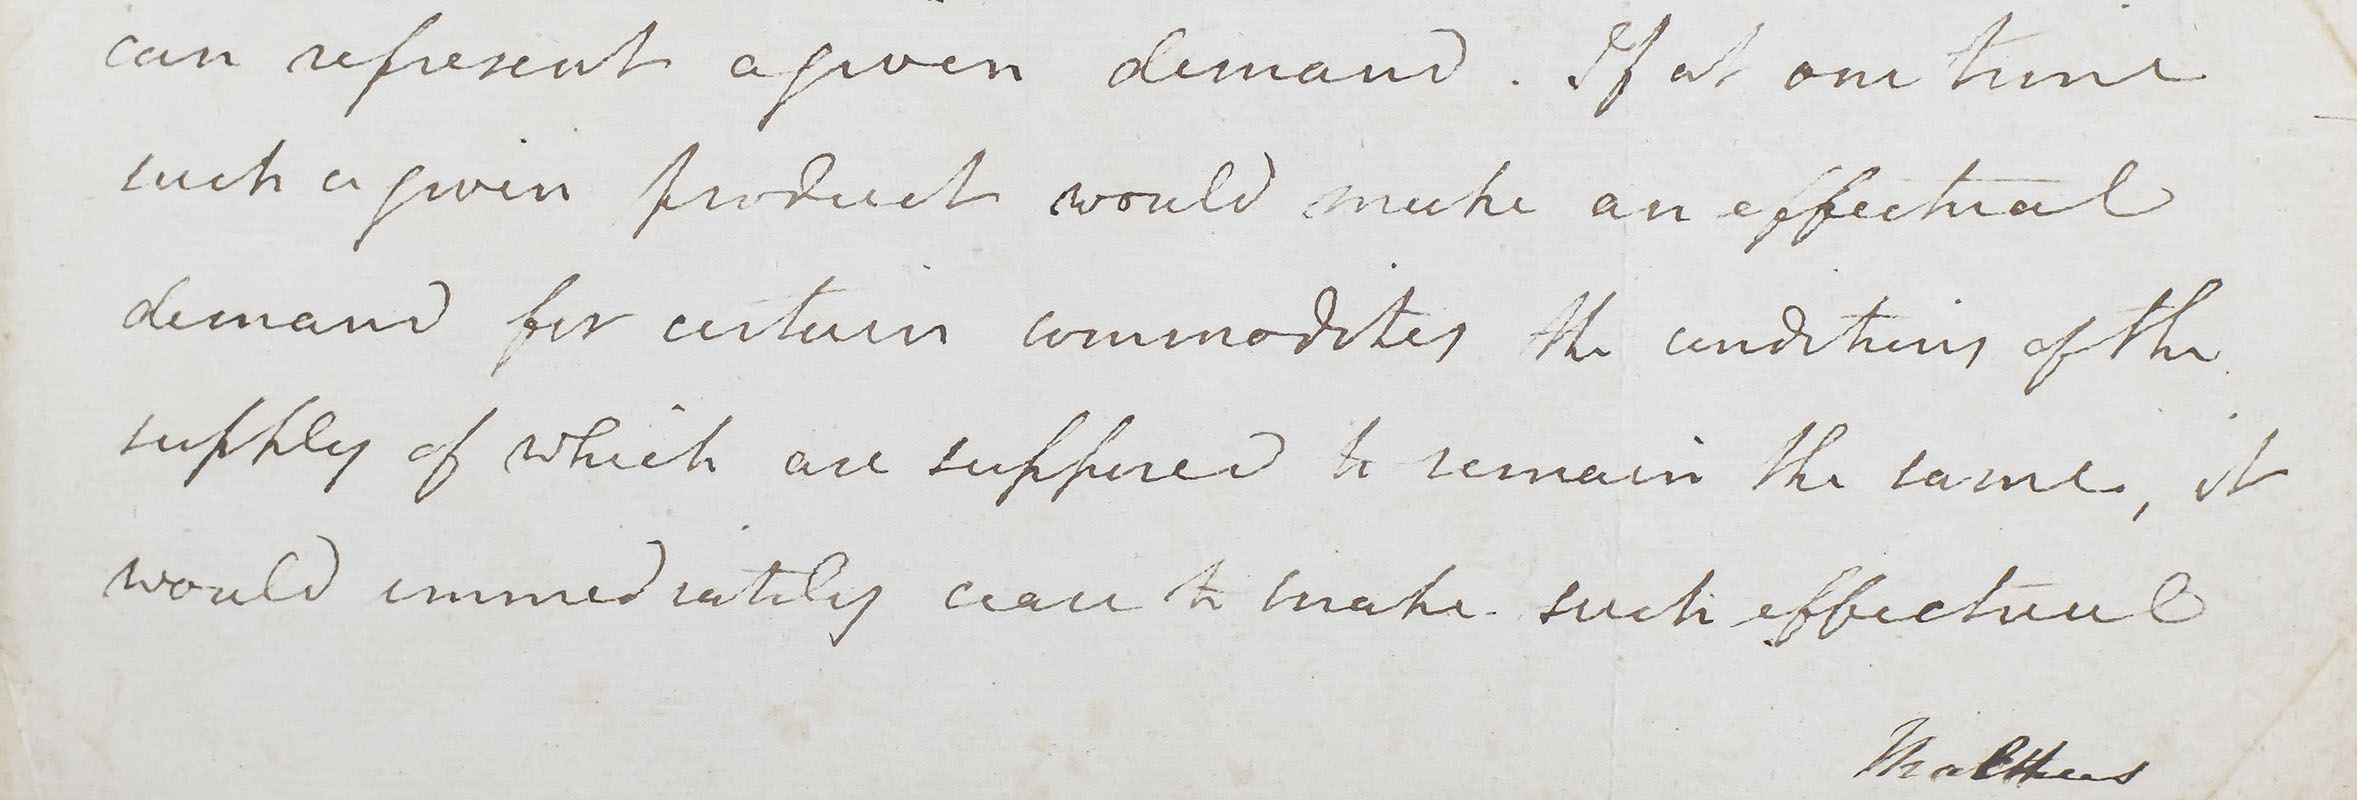 can represent a given demand. If at one time
such a given product would make an effectual
demand for certain commodites the conditions of the
supply of which are supposed to remain the same, it
would immediately cease to make such effectual
Malthus